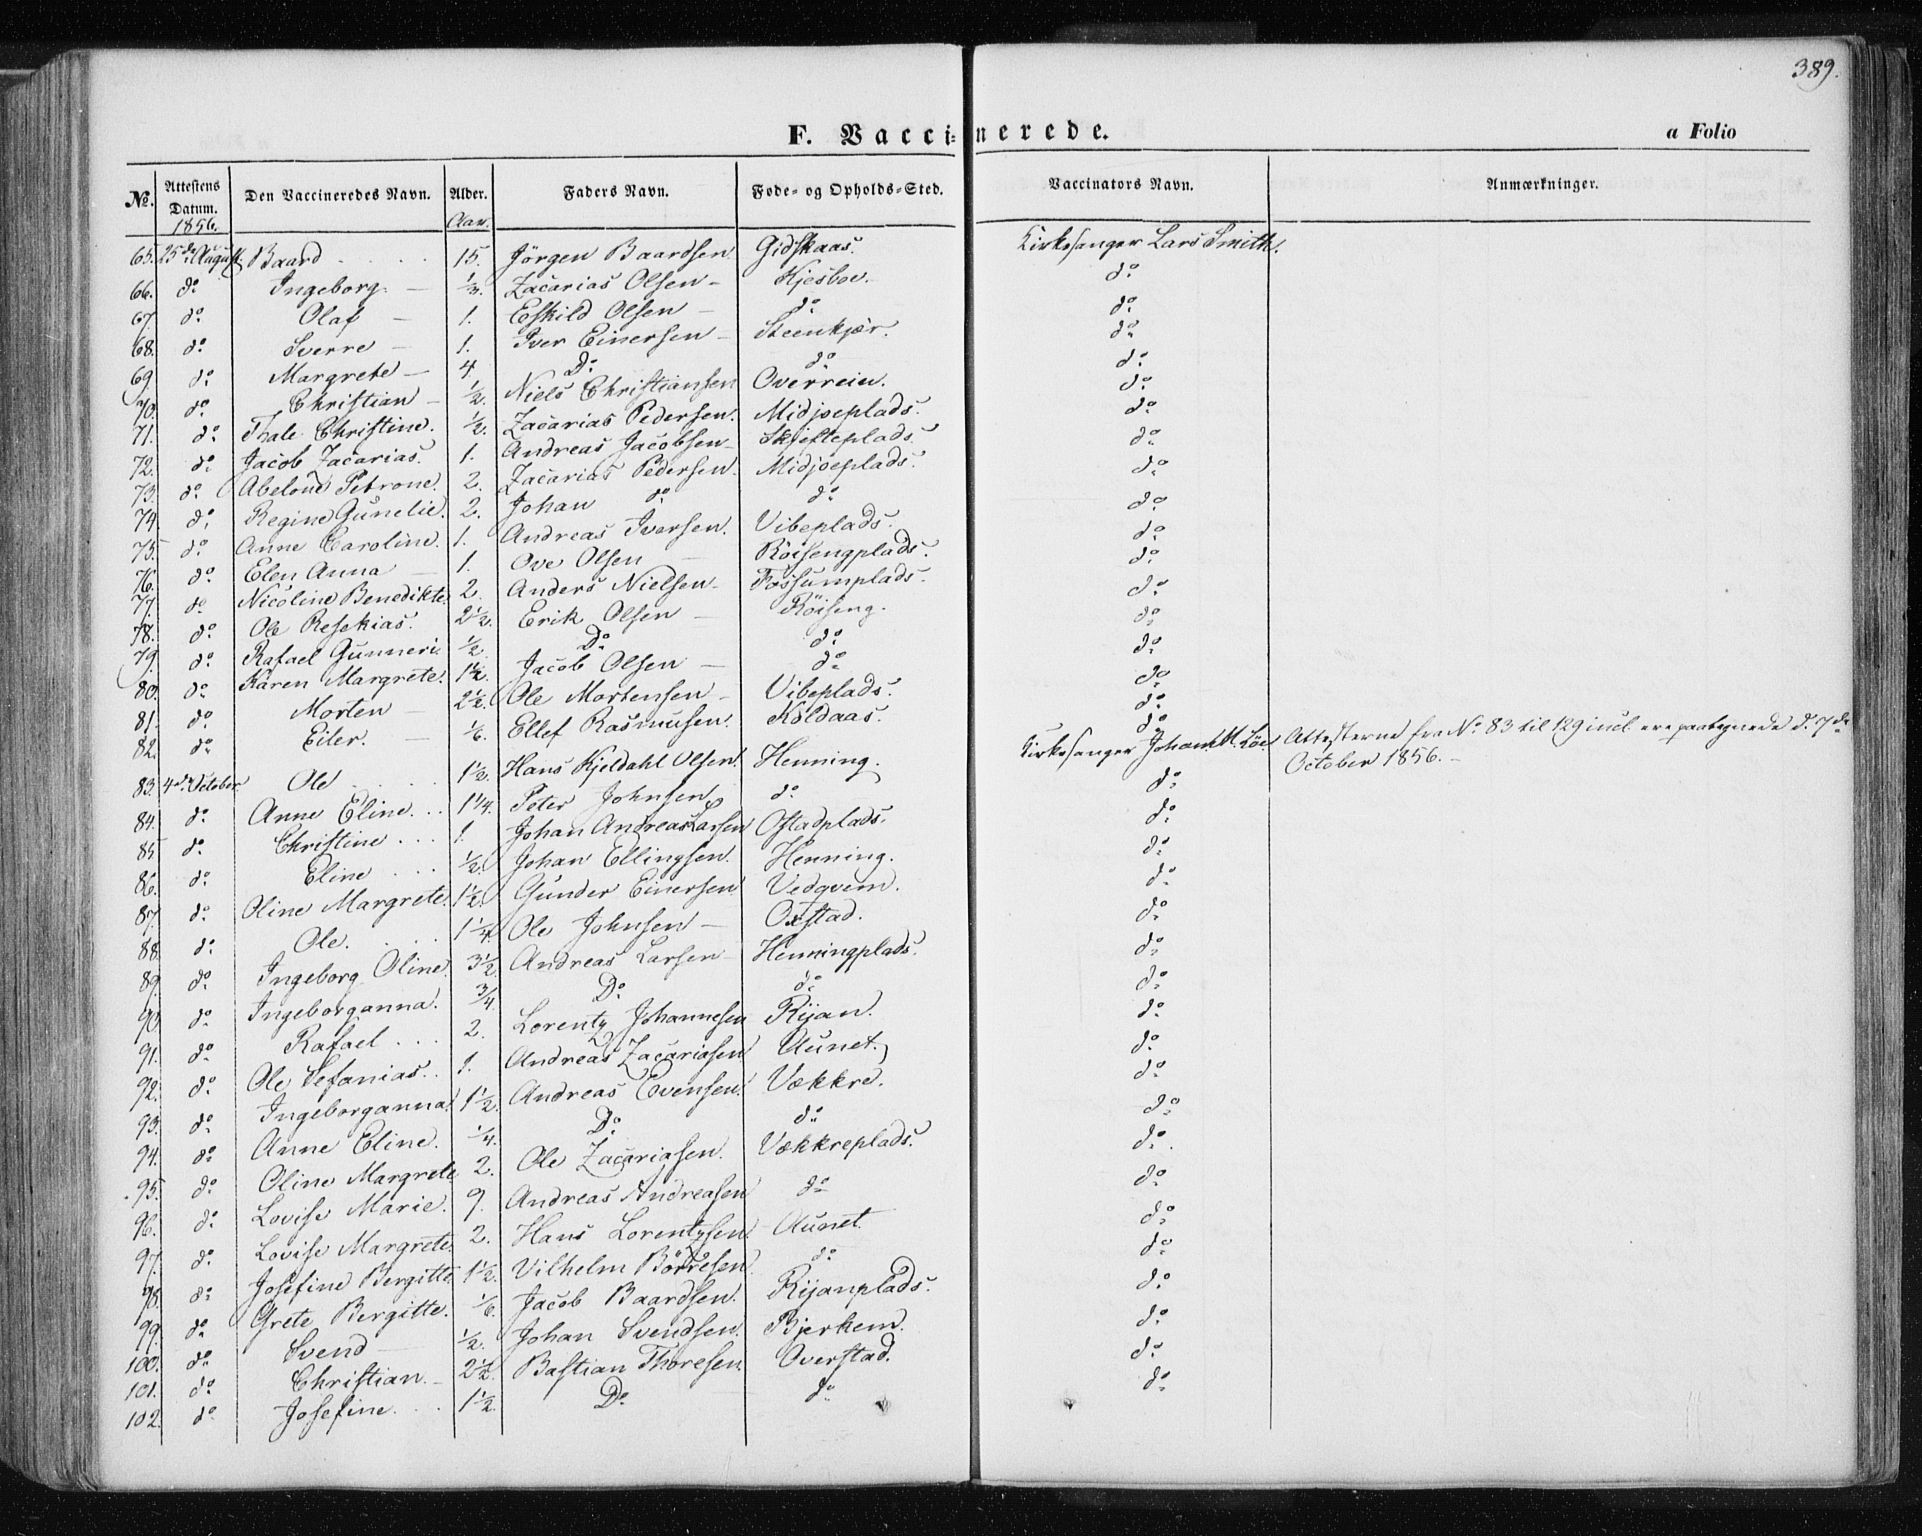 389.
F. Vaccinerede.
a Folio
No. Attestens Datum. Den Vaccineredes Navn. Alder. Faders Navn. Føde- og Opholds-Sted. Vaccinators Navn. Anmærkninger.
1856. Aar.
65. 25de August. Baard 15. Jörgen Baardsen. Gidskaas. Kirkesanger Lars Smith.
66. do Ingeborg. — 1/3. Zacarias Olsen — Kjesboe. do
67. do Olaf — 1. Eskild Olsen — do do
68. do Sverre — 1. Iver Einersen — Steenkjær. do
69. do Margrete — 4. Do do do
70. do Christian — 1/2. Niels Christiansen Overrein. do
71. do Thale Christine. 1/2. Zacarias Pedersen. Midjoeplads. do
72. do Jacob Zacarias. 1. Andreas Jacobsen — Skjefteplads. do
73. do Abelone Petrone. 2. Zacarias Pedersen. Midjoeplads. do
74. do Regine Gunelie. 2. Johan do do do
75. do Anne Caroline. 1. Andreas Iversen. Vibeplads. do
76. do Elen Anna — 1. Ove Olsen — Röisengplads. do
77. do Nicoline Benedikte. 2. Anders Nielsen — Fossumplads. do
78. do Ole Resekias. 2 1/2. Erik Olsen — Röiseng. do
79. do Rafael Gunneri. 1/2. Do do do
80. do Karen Margrete. 1 1/2. Jacob Olsen — do do
81. do Morten — 2 1/2. Ole Mortensen — Vibeplads. do
82. do Eiler. — 1/6. Ellef Rasmusen. Koldaas. do
83. 4de October Ole 1 1/2. Hans Kjeldahl Olsen. Henning. Kirkesanger Johan H. Löe Attesterne fra No 83 til 129 incl. ere paategnede d. 7de
October 1856. —
84. do Anne Eline. 1 1/4. Peter Johnsen do do
85 do Christine 1. Johan Andreas Larsen Ofstadplads. do
86. do Eline 1/2. Johan Ellingsen. Henning. do
87. do Oline Margrete. 1 1/2. Gunder Einersen Vedqvem. do
88. do Ole. 1 1/4. Ole Johnsen — Oxstad. do
89. do Ingeborg Oline. 3 1/2. Andreas Larsen — Henningplads. do
90. do Ingeborganna. 3/4. Do do do
91. do Rafael 2. Lorentz Johannesen Rijan. do
92. do Ole Sefanias. 1. Andreas Zacariasen Aunet. do
93. do Ingeborganna. 1 1/2. Andreas Evensen. Vækkre. do
94. do Anne Eline. 1/4. Do do do
95. do Oline Margrete 2. Ole Zacariasen. Vækkreplads. do
96. do Lovise Marie. 9. Andreas Andreasen do do
97. do Lovise Margrete. 2. Hans Lorentzsen. Aunet do
98. do Josefine Bergitte 1 1/2. Vilhelm Börresen do do
99. do Grete Bergitte. 1/6. Jacob Baardsen. Rijanplads. do
100. do Svend — 1/2. Johan Svendsen. Bjerkem. do
101. do Christian. — 2 1/2. Bastian Thoresen. Overstad. do
102. do Josefine. 1 1/2. Do do do